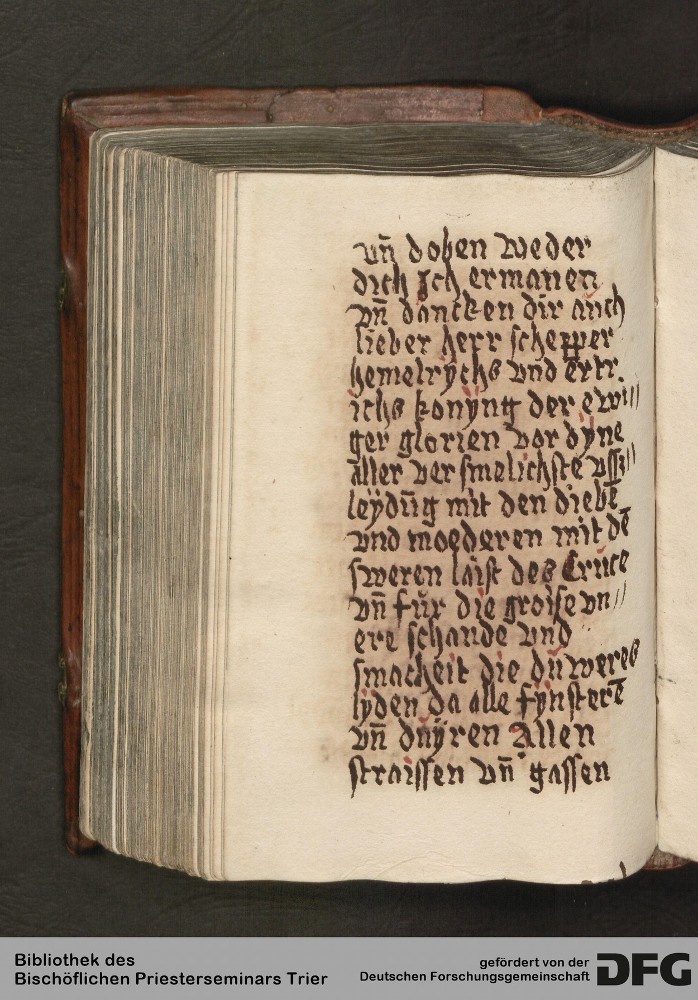 vn̄ doben weder
dich Jch ermanen
vn̄ dancken dir auch
lieber herr schepper
hemelrychs vnd ertr
ichs konÿng der ewi//
ger glorien vor dÿne
aller versmelichste vss//
leÿdūg mit den diebē
vnd moederen mit dē
sweren laist des Cruce
vn̄ fur die groise vn//
ere schande vnd
smacheit die du weres
lyden da alle fynsterē
vn̄ duÿren Allen
straissen vn̄ gassen
Bibliothek des
Bischöflichen Priesterseminars Trier
gefördert von der
Deutschen Forschungsgemeinschaft
DFG